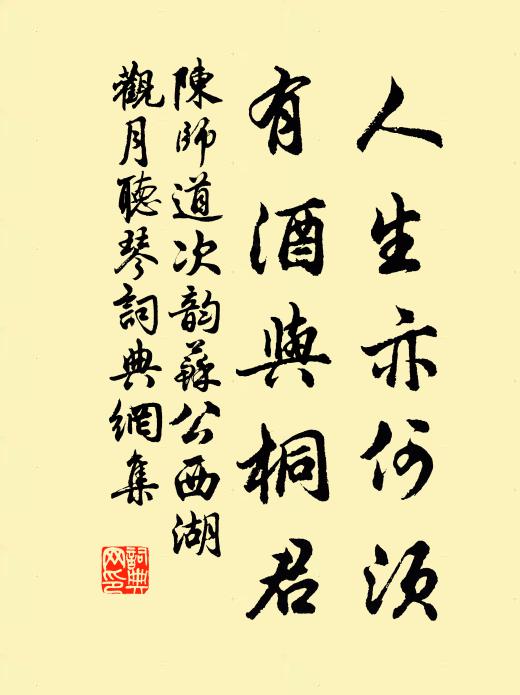 人生亦何須
有酒與桐君
陳師道次韵蘇公西湖
觀月聽琴詞典網集
詞典
网印